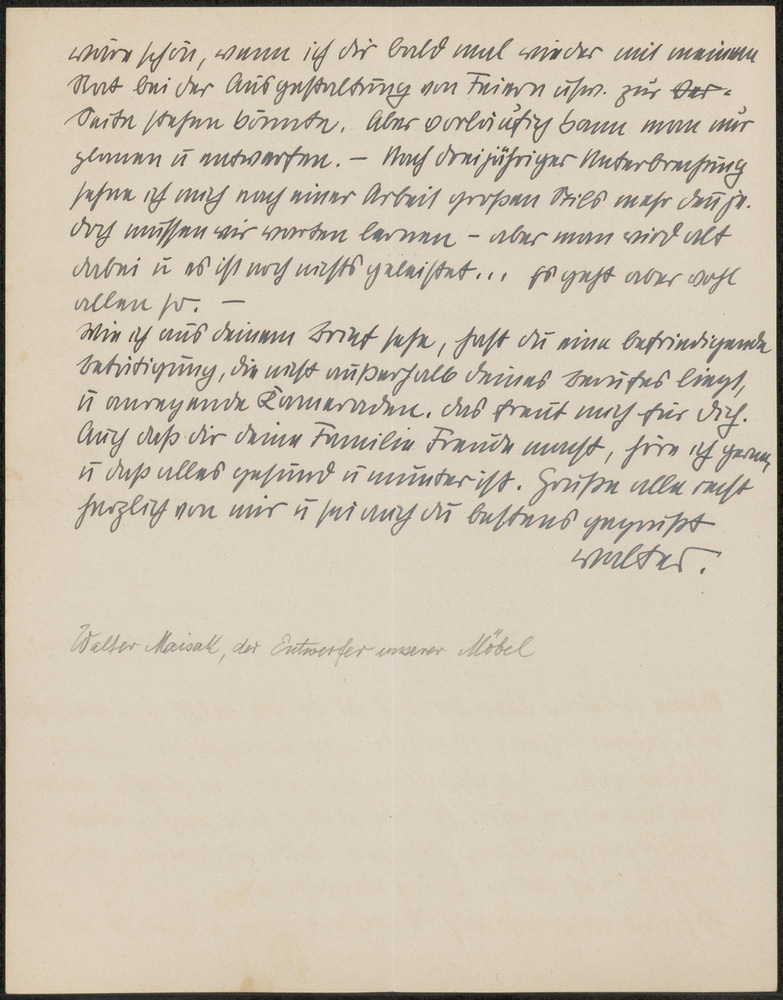 wäre schön, wenn ich dir bald mal wieder mit meinem
Rat bei der Ausgestaltung von Feiern usw. zur Ser-
Seite stehen könnte. Aber vorläufig kann man nur
planen u entwerfen. – Nach dreijähriger Unterbrechung
sehne ich mich nach einer Arbeit großen Stils mehr denn je.
doch müssen wir warten lernen – aber man wird alt
dabei u es ist noch nichts geleistet... Es geht aber wohl
allen so. –
Wie ich aus deinem Brief sehe, hast du eine befriedigende
Betätigung, die nicht außerhalb deines Berufes liegt,
u anregende Kameraden. das freut mich für dich.
Auch daß dir deine Familie Freude macht, höre ich gerne,
u daß alles gesund u munter ist. Grüße alle recht
herzlich von mir u sei auch du bestens gegrüßt
Walter.
Walter Maisak, der Entwerfer unserer Möbel